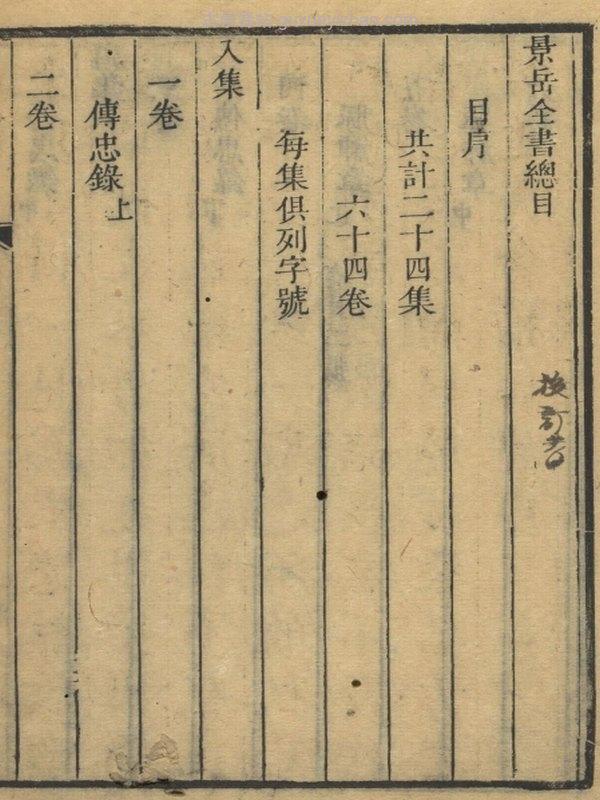 景岳全書總目
目序
共計二十四集
六十四卷
每集俱列字號
入集
一卷
傳忠錄上
二卷